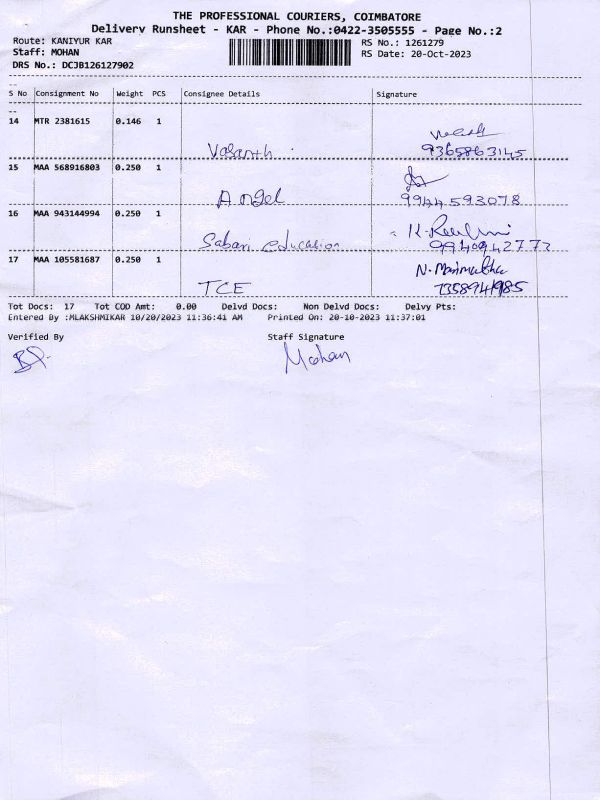 THE PROFESSIONAL COURIERS, COIMBATORE
Delivery Runsheet - KAR - Phone No.:0422-3505555 - Page No.:2
Route: KANIYUR KAR
RS No.: 1261279
Staff: MOHAN
RS Date: 20-Oct-2023
DRS No.: DCJB126127902
S No Consignment No Weight PCS Consignee Details Signature
14 MTR 2381615 0.146 1
Vasanth 9365863145
15 MAA 568916803 0.250 1
Angel 9944593078
16 MAA 943144994 0.250 1
Sabari education 9940942773
17 MAA 105581687 0.250 1
TCE 7358941985
Tot Docs: 17 Tot COD Amt: 0.00 Delvd Docs: Non Delvd Docs: Delvy Pts:
Entered By :MLAKSHMIKAR 10/20/2023 11:36:41 AM Printed On: 20-10-2023 11:37:01
Verified By Staff Signature
Mohan